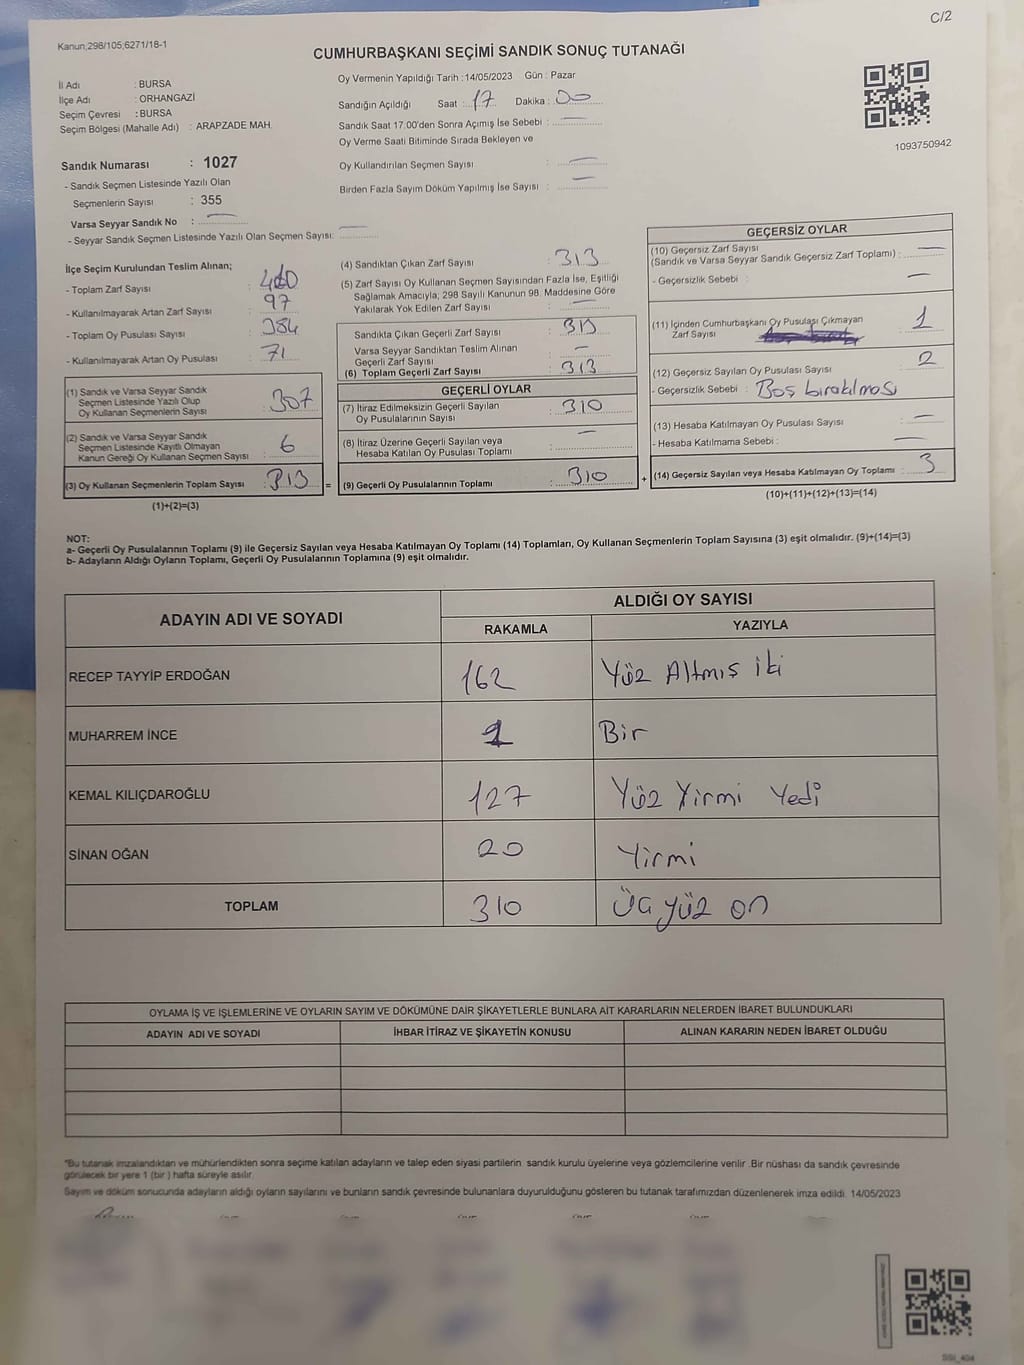 C/2
Kanun;298/105;6271/18-1
CUMHURBAŞKANI SEÇİMİ SANDIK SONUÇ TUTANAĞI
İl Adı : BURSA
İlçe Adı : ORHANGAZİ
Seçim Çevresi : BURSA
Seçim Bölgesi (Mahalle Adı) : ARAPZADE MAH.
Sandık Numarası : 1027
- Sandık Seçmen Listesinde Yazılı Olan
Seçmenlerin Sayısı : 355
Varsa Seyyar Sandık No : —
- Seyyar Sandık Seçmen Listesinde Yazılı Olan Seçmen Sayısı: —
Oy Vermenin Yapıldığı Tarih :14/05/2023 Gün : Pazar
Sandığın Açıldığı Saat : 17 Dakika : 00
Sandık Saat 17.00'den Sonra Açımış İse Sebebi : —
Oy Verme Saati Bitiminde Sırada Bekleyen ve
Oy Kullandırılan Seçmen Sayısı : —
Birden Fazla Sayım Döküm Yapılmış İse Sayısı : —
1093750942
İlçe Seçim Kurulundan Teslim Alınan;
- Toplam Zarf Sayısı :
- Kullanılmayarak Artan Zarf Sayısı : 97
- Toplam Oy Pusulası Sayısı : 384
- Kullanılmayarak Artan Oy Pusulası : 71
(1) Sandık ve Varsa Seyyar Sandık
Seçmen Listesinde Yazılı Olup
Oy Kullanan Seçmenlerin Sayısı : 307
(2) Sandık ve Varsa Seyyar Sandık
Seçmen Listesinde Kayıtlı Olmayan
Kanun Gereği Oy Kullanan Seçmen Sayısı : 6
(3) Oy Kullanan Seçmenlerin Toplam Sayısı : 313 =
(1)+(2)=(3)
(4) Sandıktan Çıkan Zarf Sayısı : 313
(5) Zarf Sayısı Oy Kullanan Seçmen Sayısından Fazla İse, Eşitliği
Sağlamak Amacıyla; 298 Sayılı Kanunun 98. Maddesine Göre
Yakılarak Yok Edilen Zarf Sayısı : —
Sandıkta Çıkan Geçerli Zarf Sayısı : 313
Varsa Seyyar Sandıktan Teslim Alınan
Geçerli Zarf Sayısı : —
(6) Toplam Geçerli Zarf Sayısı : 313
GEÇERLİ OYLAR
(7) İtiraz Edilmeksizin Geçerli Sayılan
Oy Pusulalarının Sayısı : 310
(8) İtiraz Üzerine Geçerli Sayılan veya
Hesaba Katılan Oy Pusulası Toplamı : —
(9) Geçerli Oy Pusulalarının Toplamı : 310 +
GEÇERSİZ OYLAR
(10) Geçersiz Zarf Sayısı
(Sandık ve Varsa Seyyar Sandık Geçersiz Zarf Toplamı) : —
- Geçersizlik Sebebi : —
(11) İçinden Cumhurbaşkanı Oy Pusulası Çıkmayan
Zarf Sayısı : 1
(12) Geçersiz Sayılan Oy Pusulası Sayısı : 2
- Geçersizlik Sebebi : Boş bırakılması
(13) Hesaba Katılmayan Oy Pusulası Sayısı : —
- Hesaba Katılmama Sebebi : —
(14) Geçersiz Sayılan veya Hesaba Katılmayan Oy Toplamı : 3
(10)+(11)+(12)+(13)=(14)
NOT:
a- Geçerli Oy Pusulalarının Toplamı (9) ile Geçersiz Sayılan veya Hesaba Katılmayan Oy Toplamı (14) Toplamları, Oy Kullanan Seçmenlerin Toplam Sayısına (3) eşit olmalıdır. (9)+(14)=(3)
b- Adayların Aldığı Oyların Toplamı, Geçerli Oy Pusulalarının Toplamına (9) eşit olmalıdır.
ADAYIN ADI VE SOYADI
ALDIĞI OY SAYISI
RAKAMLA YAZIYLA
RECEP TAYYİP ERDOĞAN 162 Yüz Altmış iki
MUHARREM İNCE 1 Bir
KEMAL KILIÇDAROĞLU 127 Yüz Yirmi Yedi
SİNAN OĞAN 20 Yirmi
TOPLAM 310 Üç yüz on
OYLAMA İŞ VE İŞLEMLERİNE VE OYLARIN SAYIM VE DÖKÜMÜNE DAİR ŞİKAYETLERLE BUNLARA AİT KARARLARIN NELERDEN İBARET BULUNDUKLARI
ADAYIN ADI VE SOYADI İHBAR İTİRAZ VE ŞİKAYETİN KONUSU ALINAN KARARIN NEDEN İBARET OLDUĞU
*Bu tutanak imzalandıktan ve mühürlendikten sonra seçime katılan adayların ve talep eden siyasi partilerin sandık kurulu üyelerine veya gözlemcilerine verilir .Bir nüshası da sandık çevresinde
görülecek bir yere 1 (bir) hafta süreyle asılır.
Sayım ve döküm sonucunda adayların aldığı oyların sayılarını ve bunların sandık çevresinde bulunanlara duyurulduğunu gösteren bu tutanak tarafımızdan düzenlenerek imza edildi. 14/05/2023